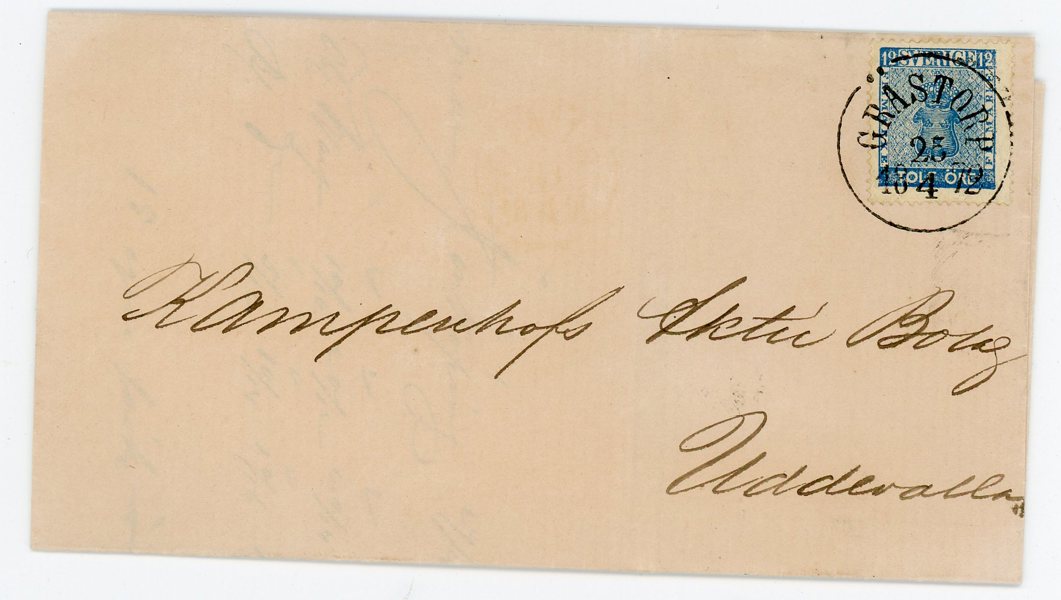 12 SVERIGE 12
FRIMÄRKE
TOLF ÖRE
GRÄSTORP
25
18 4 72
Kampenhofs Aktie Bolag
Uddevalla